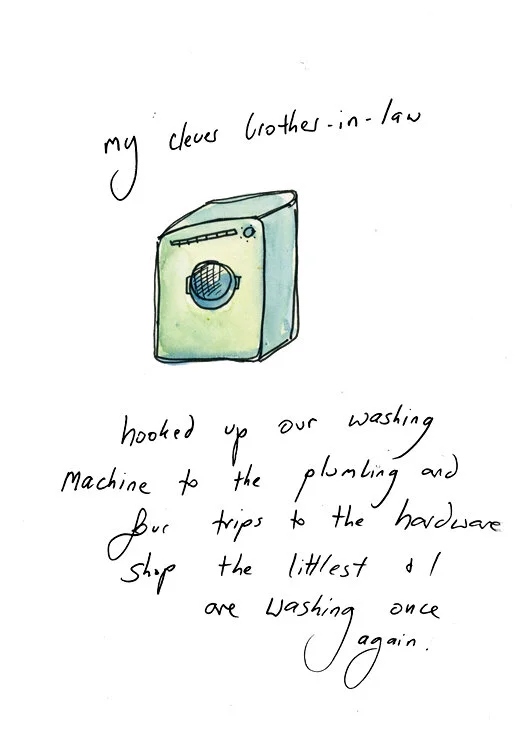 my clever brother-in-law
hooked up our washing
Machine to the plumbing and
four trips to the hardware
shop the littlest & I
are washing once
again.